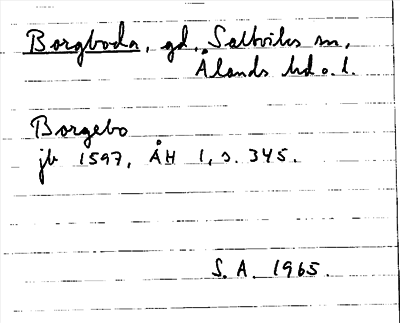 Borgboda, gd, Saltviks sn,
Ålands hd o. l.
Borgebo
jb 1597, ÅH 1, s. 345.
S. A. 1965.